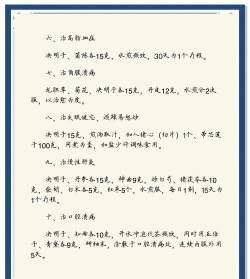 六、治高脂血症
决明子、菌陈各15克，水煎频饮，30天为1个疗程。
七、治角膜溃疡
龙胆草、菊花、决明子各15克，丹皮12克，水煎分2次
服，以治愈为度。
八、治失眠健忘、烦躁易怒
决明子15克，煎汤取汁，加入猪心（切片）1个、带芯莲
子100克，同煮为羹，加盐少许调味食用。
九、治慢性肝炎
决明子、丹参各15克，神曲9克，炒白芍、猪茯苓各10
克，柴胡、白术各5克，红枣5个，水煎服，每日1剂，15天为
1个疗程。
十、治口腔溃疡
决明子、知母各10克，开水冲泡代茶频饮，同时用五倍
子、青黛各9克，研细末，涂敷于口腔溃疡处，连续内服外用
5天。